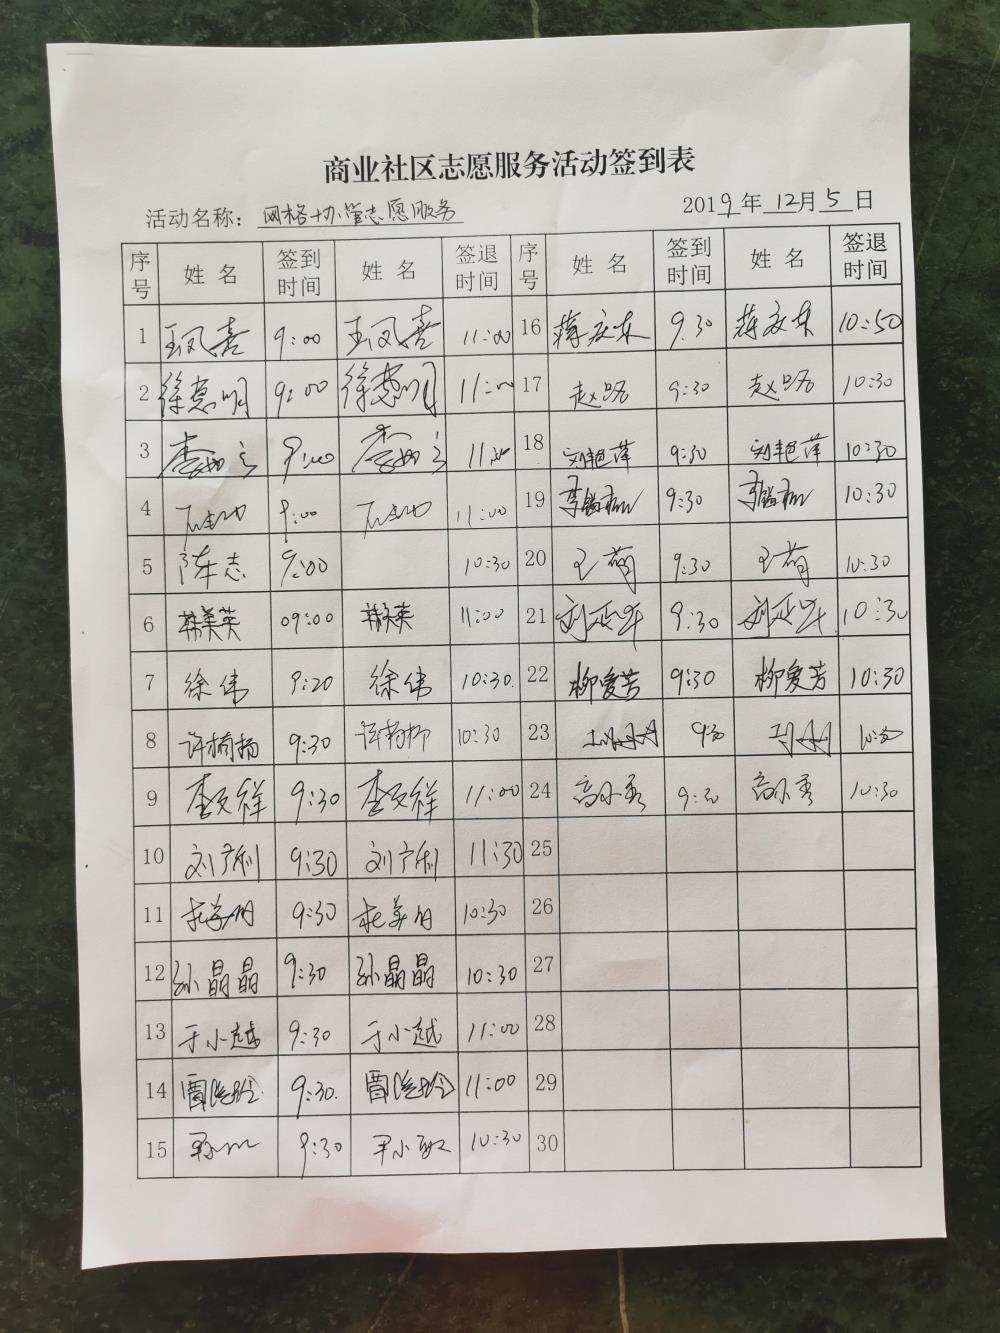 商业社区志愿服务活动签到表
活动名称：网格协管志愿服务 2019年12月5日
序号 姓名 签到时间 姓名 签退时间 序号 姓名 签到时间 姓名 签退时间
1 王凤喜 9:00 王凤喜 11:00 16 蒋庆东 9:30 蒋庆东 10:50
2 徐慧明 9:00 徐慧明 11:00 17 赵 9:30 赵 10:30
3 李 9:00 李 11: 18 刘艳萍 9:30 刘艳萍 10:30
4 9:00 11:00 19 李 9:30 李 10:30
5 陈志 9:00 10:30 20 王萌 9:30 王萌 10:30
6 韩美英 09:00 韩美英 11:00 21 刘亚华 9:30 刘亚华 10:30
7 徐伟 9:20 徐伟 10:30 22 柳爱芳 9:30 柳爱芳 10:30
8 许 9:30 许 10:30 23 9:30 10:30
9 李文祥 9:30 李文祥 11:00 24 高小秀 9:30 高小秀 10:30
10 刘广利 9:30 刘广利 11:30 25
11 杜美月 9:30 杜美月 10:30 26
12 孙晶晶 9:30 孙晶晶 10:30 27
13 于小越 9:30 于小越 11:00 28
14 贾 9:30 贾 11:00 29
15 9:30 小 10:30 30